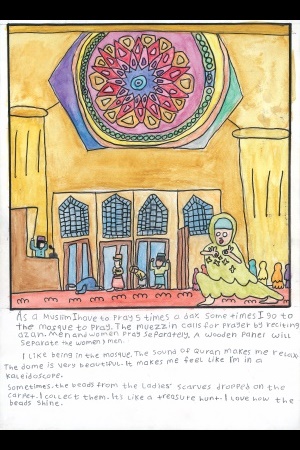 As a Muslim I have to Pray 5 times a day some times I go to
the mosque to Pray. The muezzin calls for Prayer by reciting
azan. Men and women Pray seParately, A wooden Panel will
SeParate the women & men.
I like being in the mosque. The sound of Quran makes me relax
The dome is very beautiful. It makes me feel like I'm in a
Kaleidoscope.
Sometimes, the beads from the Ladies' scarves dropped on the
carpet. I collect them. It's like a treasure hunt. I Love how the
beads shine.